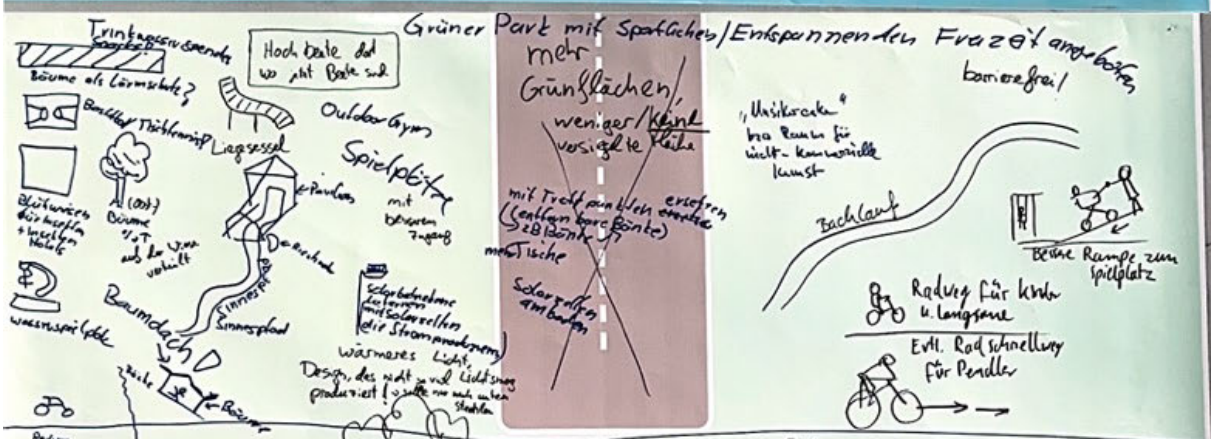 Grüner Park mit Sportlichen/Entspannenden Freizeit angeboten
barrierefrei
Trinkwasserspender
Bäume als Lärmschutz?
Hochbeete dort
wo jetzt Beete sind
Basketball Tischtennis
Liegesessel
Outdoor Gym
Spielplätze
mit
besseren
Zugang
Pavillon
Blühwiesen
für Insekten
+ Insekten
Hotels
Bäume
(Obst)
auf der Wiese
verteilt
Sinnespfad
Sinnespfad
Wasserspielplatz
Baumdach
Bäume
Solarbetriebene
Laternen
mit Solarzellen
die Strom produzieren)
wärmeres Licht,
Design, das nicht so viel Lichtsmog
produziert (
sollte nur nach unten
strahlen
mehr
Grünflächen,
weniger/keine
versiegelte Fläche
mit Treffpunkten ersetzen
(entfernbare Bänke)
z B Bänke
mehr Tische
Solarzellen
anbauen
"Musikecke"
bzw Raum für
nicht-kommerzielle
Kunst
Bachlauf
Bessere Rampe zum
Spielplatz
Radweg für Kinder
u. Langsame
Evtl. Radschnellweg
für Pendler